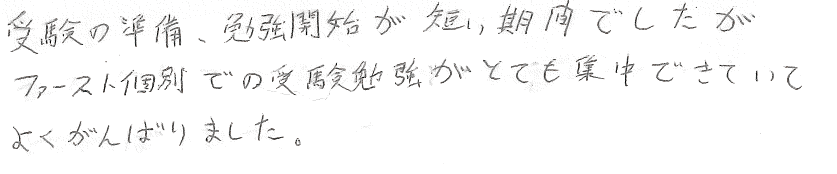 受験の準備、勉強開始が短い期間でしたが
ファースト個別での受験勉強がとても集中できていて
よくがんばりました。